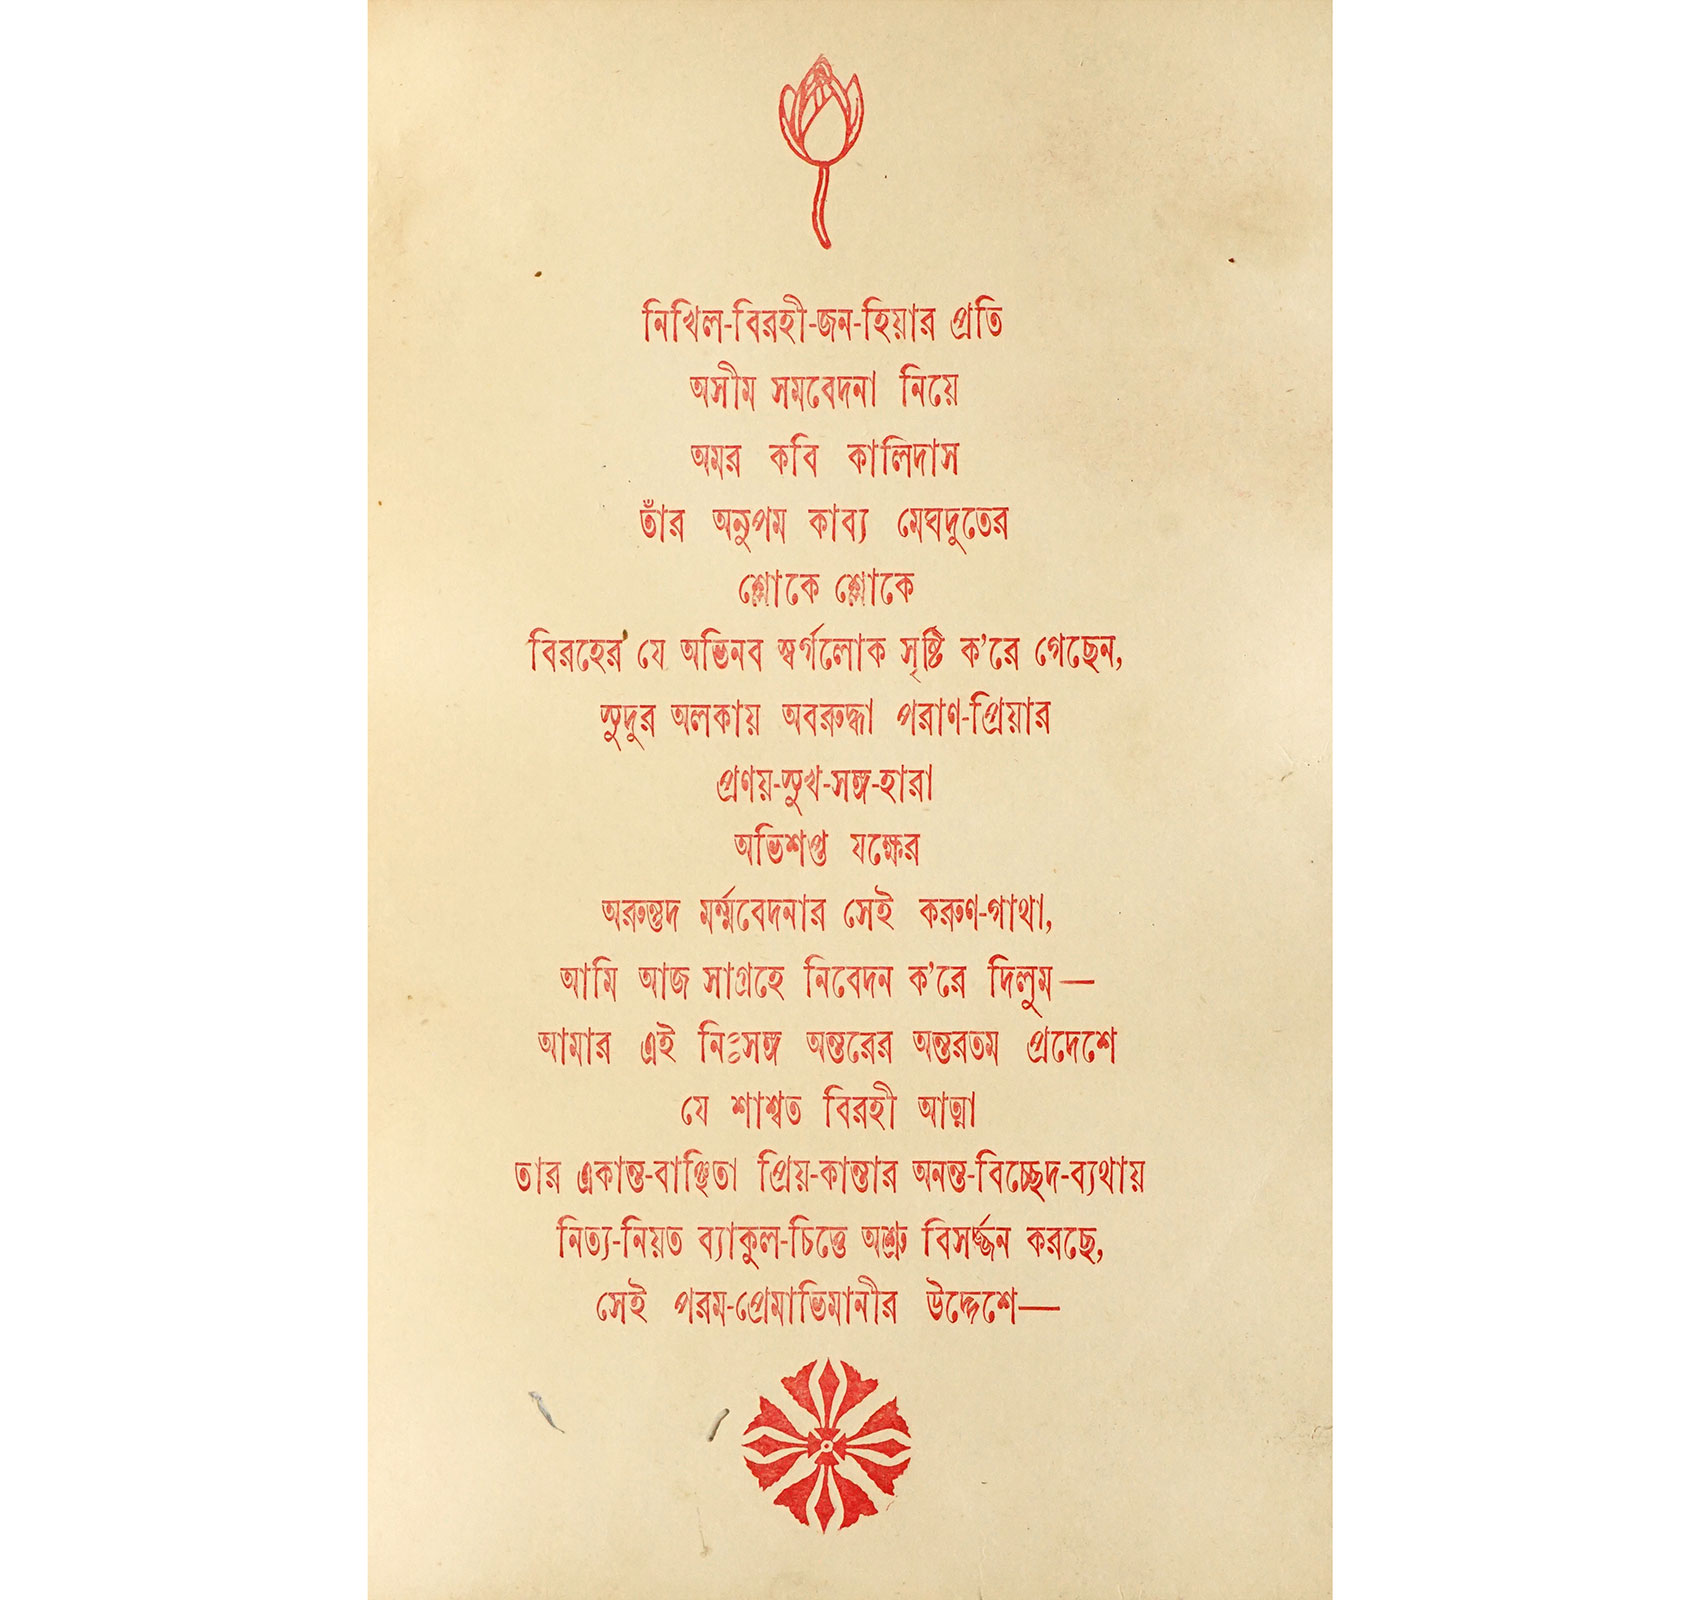 নিখিল-বিরহী-জন-হিয়ার প্রতি
অসীম সমবেদনা নিয়ে
অমর কবি কালিদাস
তাঁর অনুপম কাব্য মেঘদূতের
শ্লোকে শ্লোকে
বিরহের যে অভিনব স্বর্গলোক সৃষ্টি ক’রে গেছেন,
সুদূর অলকায় অবরুদ্ধা পরাণ-প্রিয়ার
প্রণয়-সুখ-সঙ্গ-হারা
অভিশপ্ত যক্ষের
অরুন্তুদ মর্ম্মবেদনার সেই করুণ-গাথা,
আমি আজ সাগ্রহে নিবেদন ক’রে দিলুম—
আমার এই নিঃসঙ্গ অন্তরের অন্তরতম প্রদেশে
যে শাশ্বত বিরহী আত্মা
তার একান্ত-বাঞ্ছিতা প্রিয়-কান্তার অনন্ত-বিচ্ছেদ-ব্যথায়
নিত্য-নিয়ত ব্যাকুল-চিত্তে অশ্রু বিসর্জ্জন করছে,
সেই পরম-প্রেমাভিমানীর উদ্দেশে—